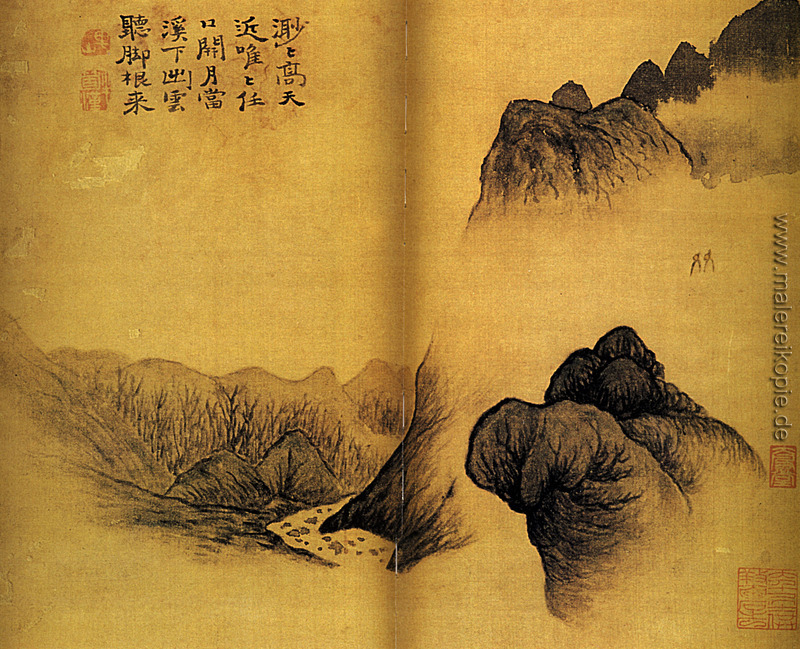 渺〻高天
近唯〻任
口開月當
溪下雲
聽脚根来
www.malereikopie.de